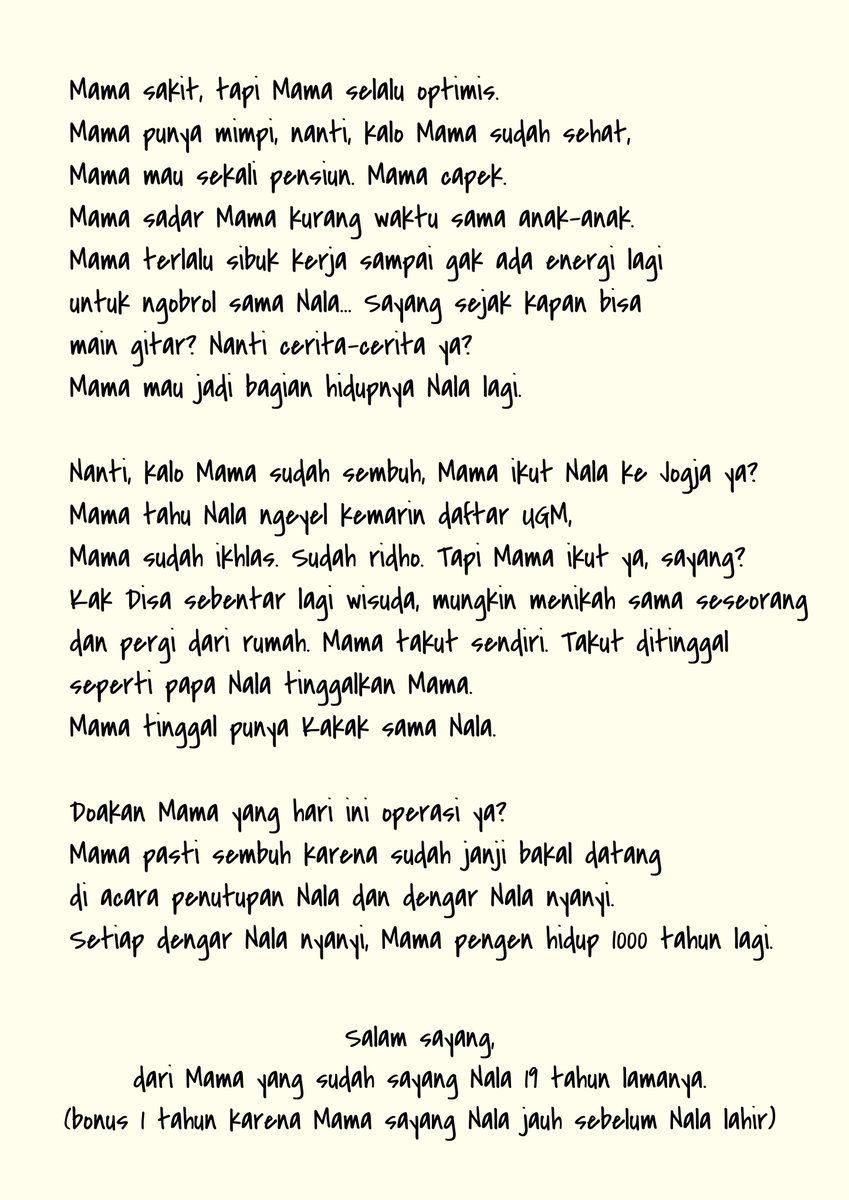 Mama sakit, tapi Mama selalu optimis.
Mama punya mimpi, nanti, kalo Mama sudah sehat,
Mama mau sekali pensiun. Mama capek.
Mama sadar Mama kurang waktu sama anak-anak.
Mama terlalu sibuk kerja sampai gak ada energi lagi
untuk ngobrol sama Nala... Sayang sejak kapan bisa
main gitar? Nanti cerita-cerita ya?
Mama mau jadi bagian hidupnya Nala lagi.
Nanti, kalo Mama sudah sembuh, Mama ikut Nala ke Jogja ya?
Mama tahu Nala ngeyel kemarin daftar UGM,
Mama sudah ikhlas. Sudah ridho. Tapi Mama ikut ya, sayang?
Kak Disa sebentar lagi wisuda, mungkin menikah sama seseorang
dan pergi dari rumah. Mama takut sendiri. Takut ditinggal
seperti papa Nala tinggalkan Mama.
Mama tinggal punya Kakak sama Nala.
Doakan Mama yang hari ini operasi ya?
Mama pasti sembuh karena sudah janji bakal datang
di acara penutupan Nala dan dengar Nala nyanyi.
Setiap dengar Nala nyanyi, Mama pengen hidup 1000 tahun lagi.
Salam sayang,
dari Mama yang sudah sayang Nala 19 tahun lamanya.
(bonus 1 tahun karena Mama sayang Nala jauh sebelum Nala lahir)